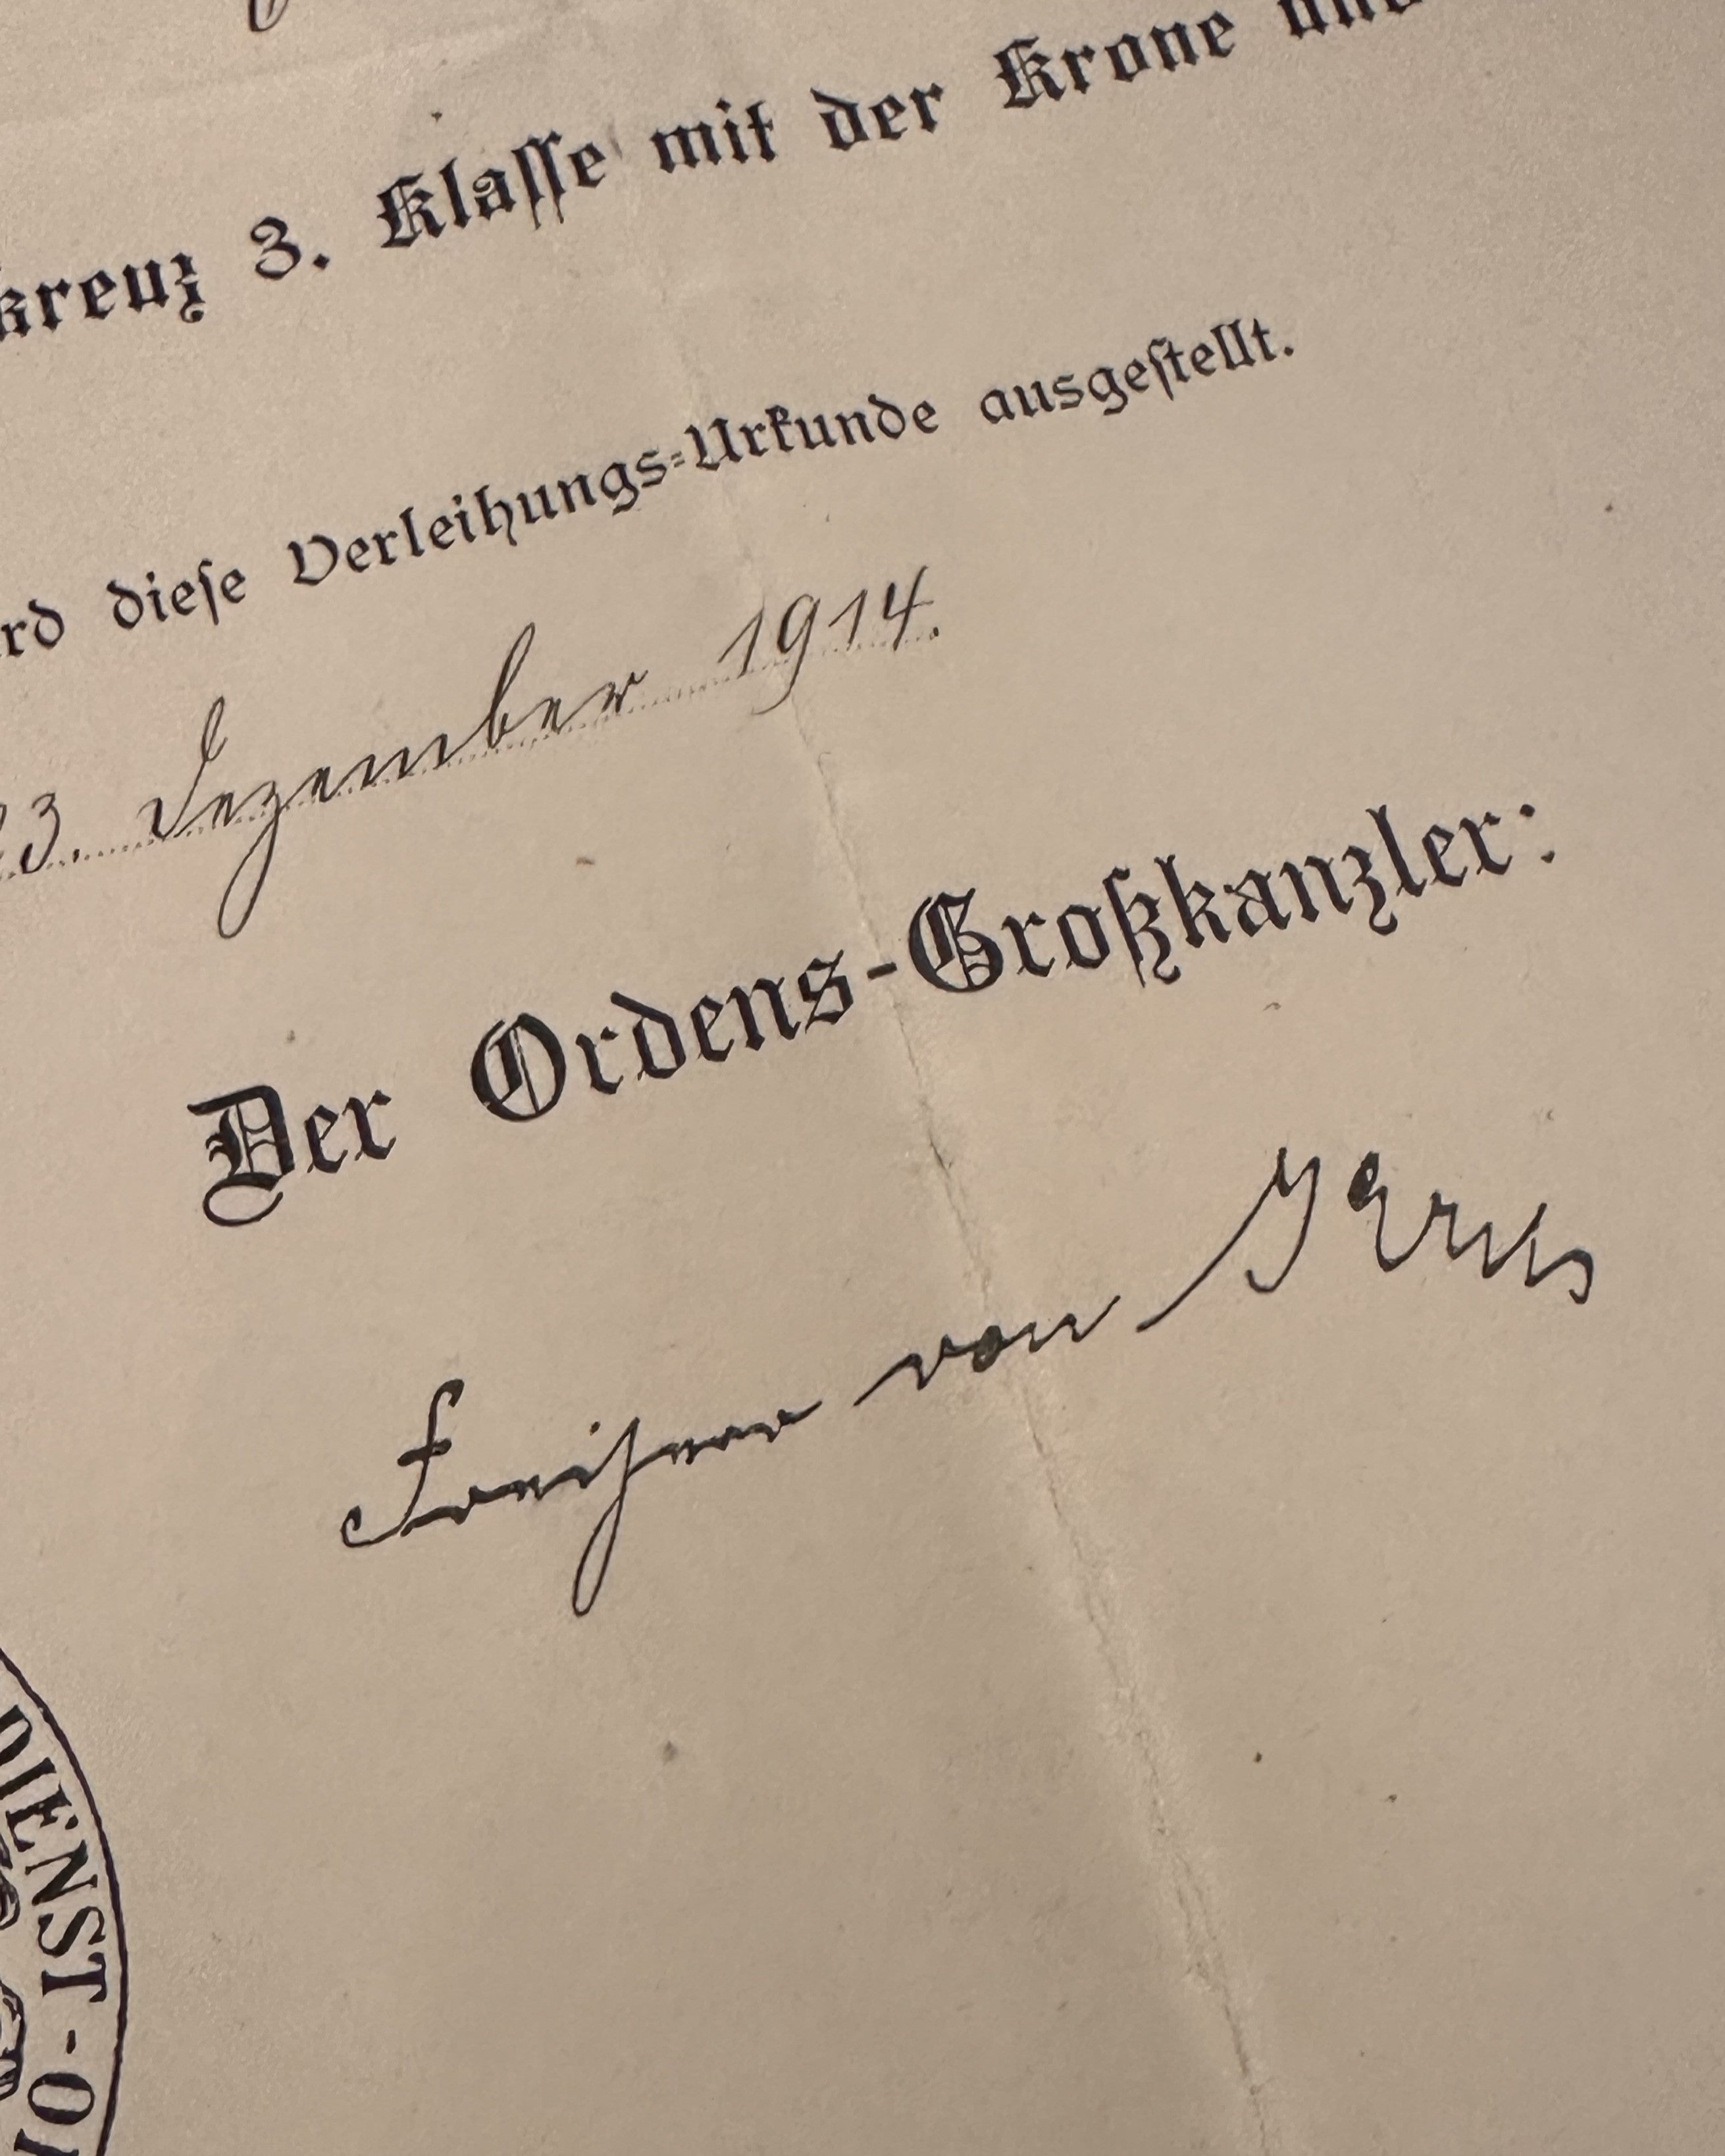 kreuz 3. Klasse mit der Krone und
rd diese Verleihungs-Urkunde ausgestellt.
23. Dezember 1914.
Der Ordens-Großkanzler:
Freiherr von
DIENST-O